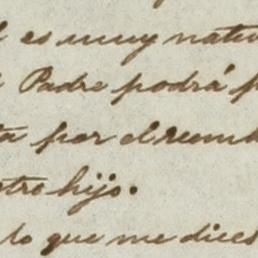 es muy natu
Padre podrá p
ta por el rumb
stro hijo.
lo que me dices